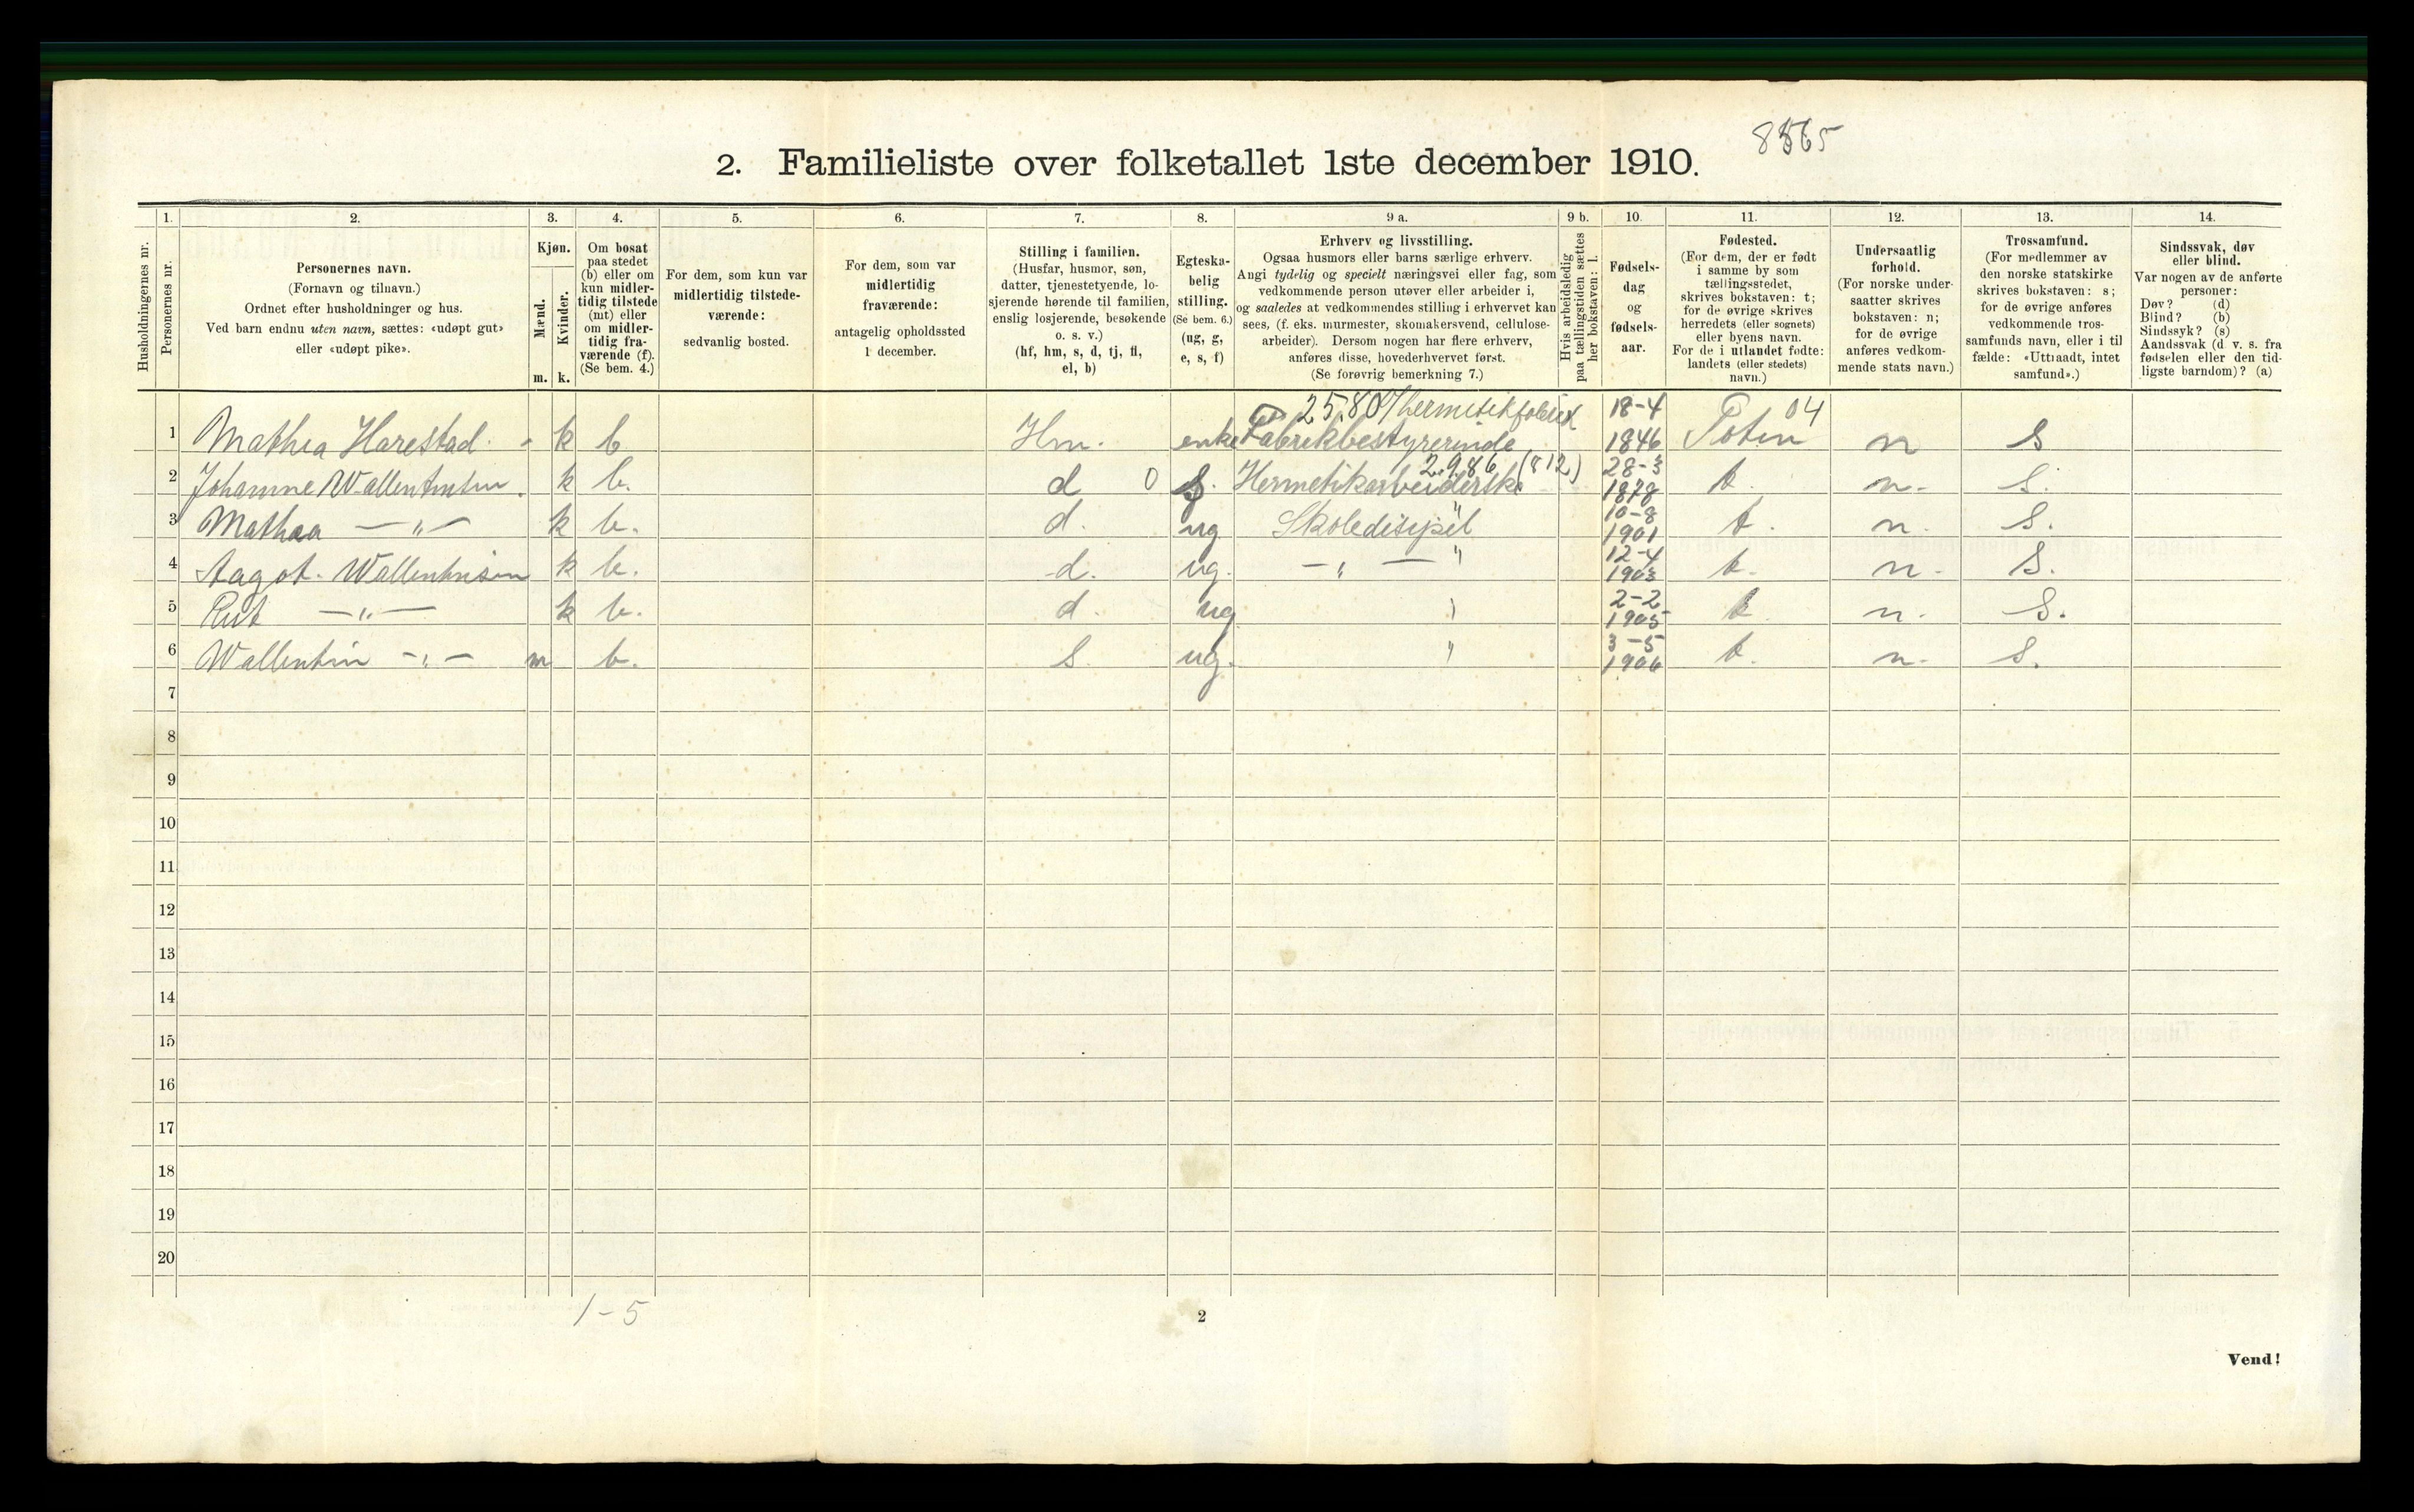 8565
2. Familieliste over folketallet 1ste december 1910.
1. 2. 3. 4. 5. 6. 7. 8. 9 a. 9 b. 10. 11. 12. 13. 14.
Husholdningernes nr.
Personernes nr.
Personernes navn.
(Fornavn og tilnavn.)
Ordnet efter husholdninger og hus.
Ved barn endnu uten navn, sættes: «udøpt gut»
eller «udøpt pike».
Kjøn.
Mænd.
Kvinder.
m. k.
Om bosat
paa stedet
(b) eller om
kun midler-
tidig tilstede
(mt) eller
om midler-
tidig fra-
værende (f).
(Se bem. 4.)
For dem, som kun var
midlertidig tilstede-
værende:
sedvanlig bosted.
For dem, som var
midlertidig
fraværende:
antagelig opholdssted
1 december.
Stilling i familien.
(Husfar, husmor, søn,
datter, tjenestetyende, lo-
sjerende hørende til familien,
enslig losjerende, besøkende
o. s. v.)
(hf, hm, s, d, tj, fl,
el, b)
Egteska-
belig
stilling.
(Se bem. 6.)
(ug, g,
e, s, f)
Erhverv og livsstilling.
Ogsaa husmors eller barns særlige erhverv.
Angi tydelig og specielt næringsvei eller fag, som
vedkommende person utøver eller arbeider i,
og saaledes at vedkommendes stilling i erhvervet kan
sees, (f. eks. murmester, skomakersvend, cellulose-
arbeider). Dersom nogen har flere erhverv,
anføres disse, hovederhvervet først.
(Se forøvrig bemerkning 7.)
Hvis arbeidsledig
paa tællingstiden sættes
her bokstaven: l.
Fødsels-
dag
og
fødsels-
aar.
Fødested.
(For dem, der er født
i samme by som
tællingsstedet,
skrives bokstaven: t;
for de øvrige skrives
herredets (eller sognets)
eller byens navn.
For de i utlandet fødte:
landets (eller stedets)
navn.)
Undersaatlig
forhold.
(For norske under-
saatter skrives
bokstaven: n;
for de øvrige
anføres vedkom-
mende stats navn.)
Trossamfund.
(For medlemmer av
den norske statskirke
skrives bokstaven: s;
for de øvrige anføres
vedkommende tros-
samfunds navn, eller i til
fælde: «Uttraadt, intet
samfund».)
Sindssvak, døv
eller blind.
Var nogen av de anførte
personer:
Døv? (d)
Blind? (b)
Sindssyk? (s)
Aandssvak (d v. s. fra
fødselen eller den tid-
ligste barndom)? (a)
2580 / hermetikfabrik 18-4 04
1 Mathia Harestad k b Hm. enke Fabrikbestyrerinde 1846 n s
2.9.86 (812) 28-3
2 Johanne Wallentinsen. k b. d 0 s. Hermetikarbeiderske 1878 t. n. s.
10-8
3 Mathea — " — k b. d. ug Skoledisipel 1901 t. n. s.
12-4
4 Aagot. Wallentinsen k b. d. ug. — " — " 1903 t. n. s.
2-2
5 Rut — " — k b. d. ug " 1905 t n. s.
3-5
6 Wallentin — " — m b. s. ug. " 1906 t. n. s.
7
8
9
10
11
12
13
14
15
16
17
18
19
20
1-5
2
Vend!